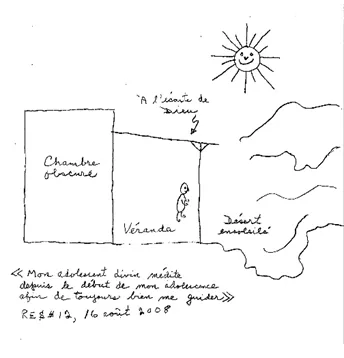 "A l'écoute de
Dieu
Chambre
obscure
Véranda
Désert
ensoleillé
« Mon adolescent divin médite
depuis le début de mon adolescence
afin de toujours bien me guider »
RES#12, 16 août 2008